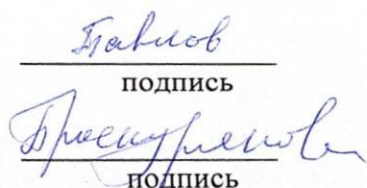 Павлов
подпись
Проскурякова
подпись